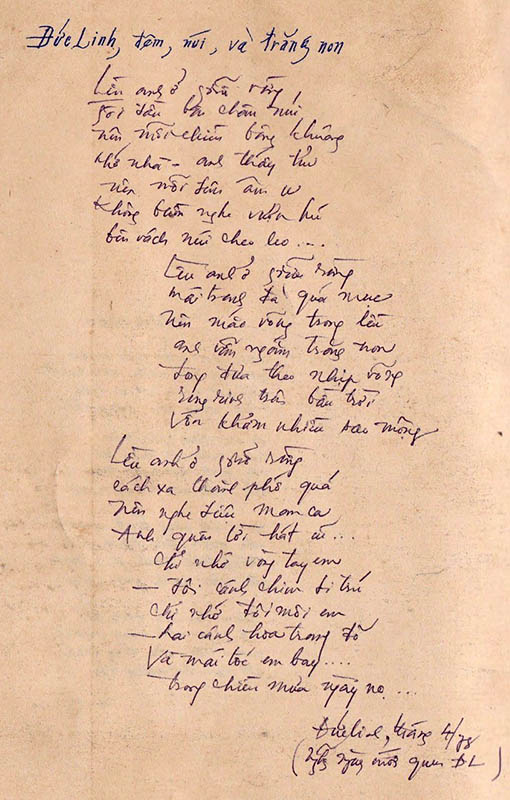 Đức Linh, đêm, núi, và trăng non
Lều anh ở giữa rừng
gối đầu bên chân núi
nên mỗi chiều bâng khuâng
nhớ nhà - anh thấy thu
nên mỗi âm u
không buồn nghe vượn hú
bên vách núi cheo leo....
Lều anh ở giữa rừng
mái tranh đã quá mục
nên máo võng trong lều
anh vẫn ngắm trăng non
đong đưa theo nhịp võng
rưng rưng trên bầu trời
vốn khảm nhiều sao mộng
Lều anh ở giữa rừng
cách xa thành phố quá
nên nghe mãi dân ca
Anh quên lời hát cũ...
chỉ nhớ vòng tay em
— đôi cánh chim di trú
chỉ nhớ đôi môi em
— hai cánh hoa trang đỏ
Và mái tóc em bay....
trong chiều mưa ngày nọ...
Đức Linh, tháng 4/78
( ngày mới quen ĐL )